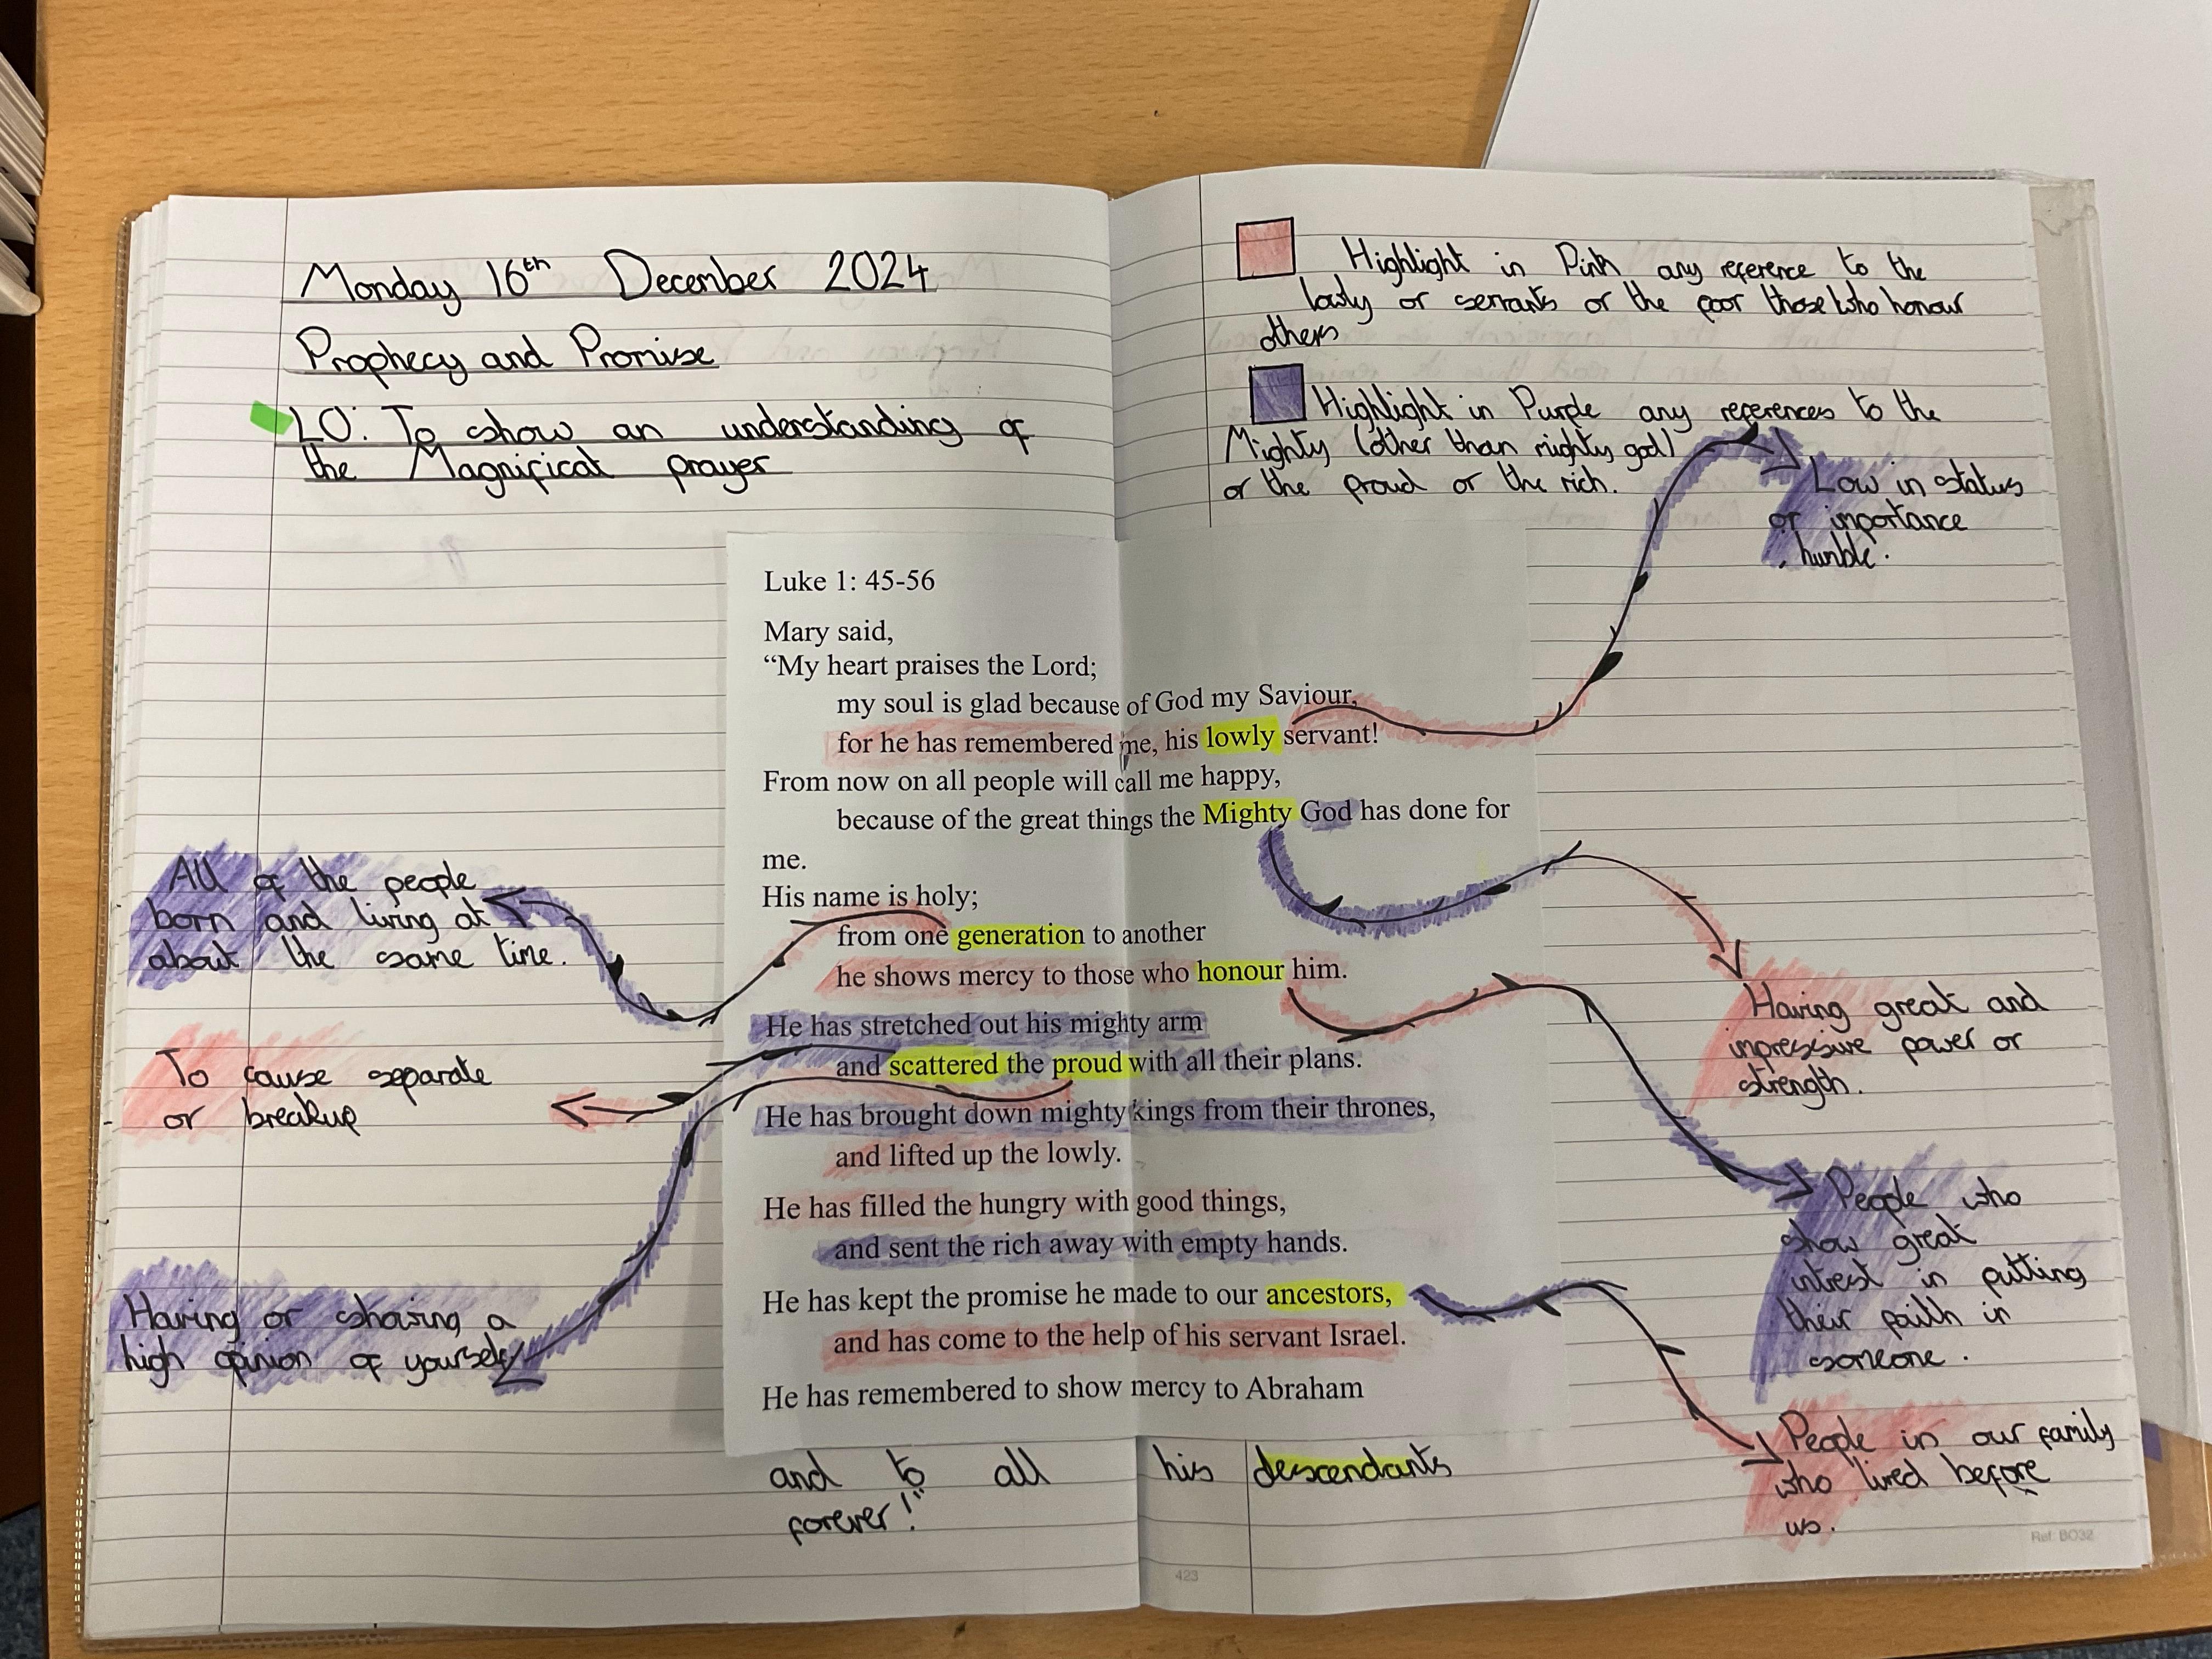 Monday 16th December 2024
Prophecy and Promise
LO: To show an understanding of
the Magnificat prayer
Highlight in Pink any reference to the
lowly or servants or the poor those who honour
others
Highlight in Purple any references to the
Mighty (other than mighty god)
or the proud or the rich.
Low in status
or importance
humble.
Luke 1: 45-56
Mary said,
“My heart praises the Lord;
my soul is glad because of God my Saviour,
for he has remembered me, his lowly servant!
From now on all people will call me happy,
because of the great things the Mighty God has done for
me.
His name is holy;
from one generation to another
he shows mercy to those who honour him.
He has stretched out his mighty arm
and scattered the proud with all their plans.
He has brought down mighty kings from their thrones,
and lifted up the lowly.
He has filled the hungry with good things,
and sent the rich away with empty hands.
He has kept the promise he made to our ancestors,
and has come to the help of his servant Israel.
He has remembered to show mercy to Abraham
and to all his descendants
forever!”
All of the people
born and living at
about the same time.
To cause separate
or breakup
Having or showing a
high opinion of yourself
Having great and
impressive power or
strength.
People who
show great
intrest in putting
their faith in
someone.
People in our family
who lived before
us.
Ref: BO32
423